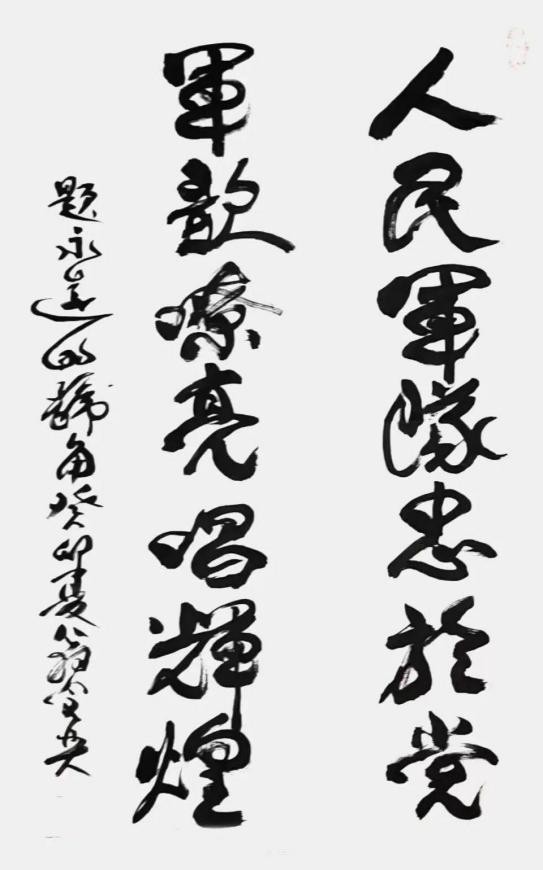 人民軍隊忠於党
軍歌嘹亮唱輝煌
題永遠的號角癸卯夏翁宝央